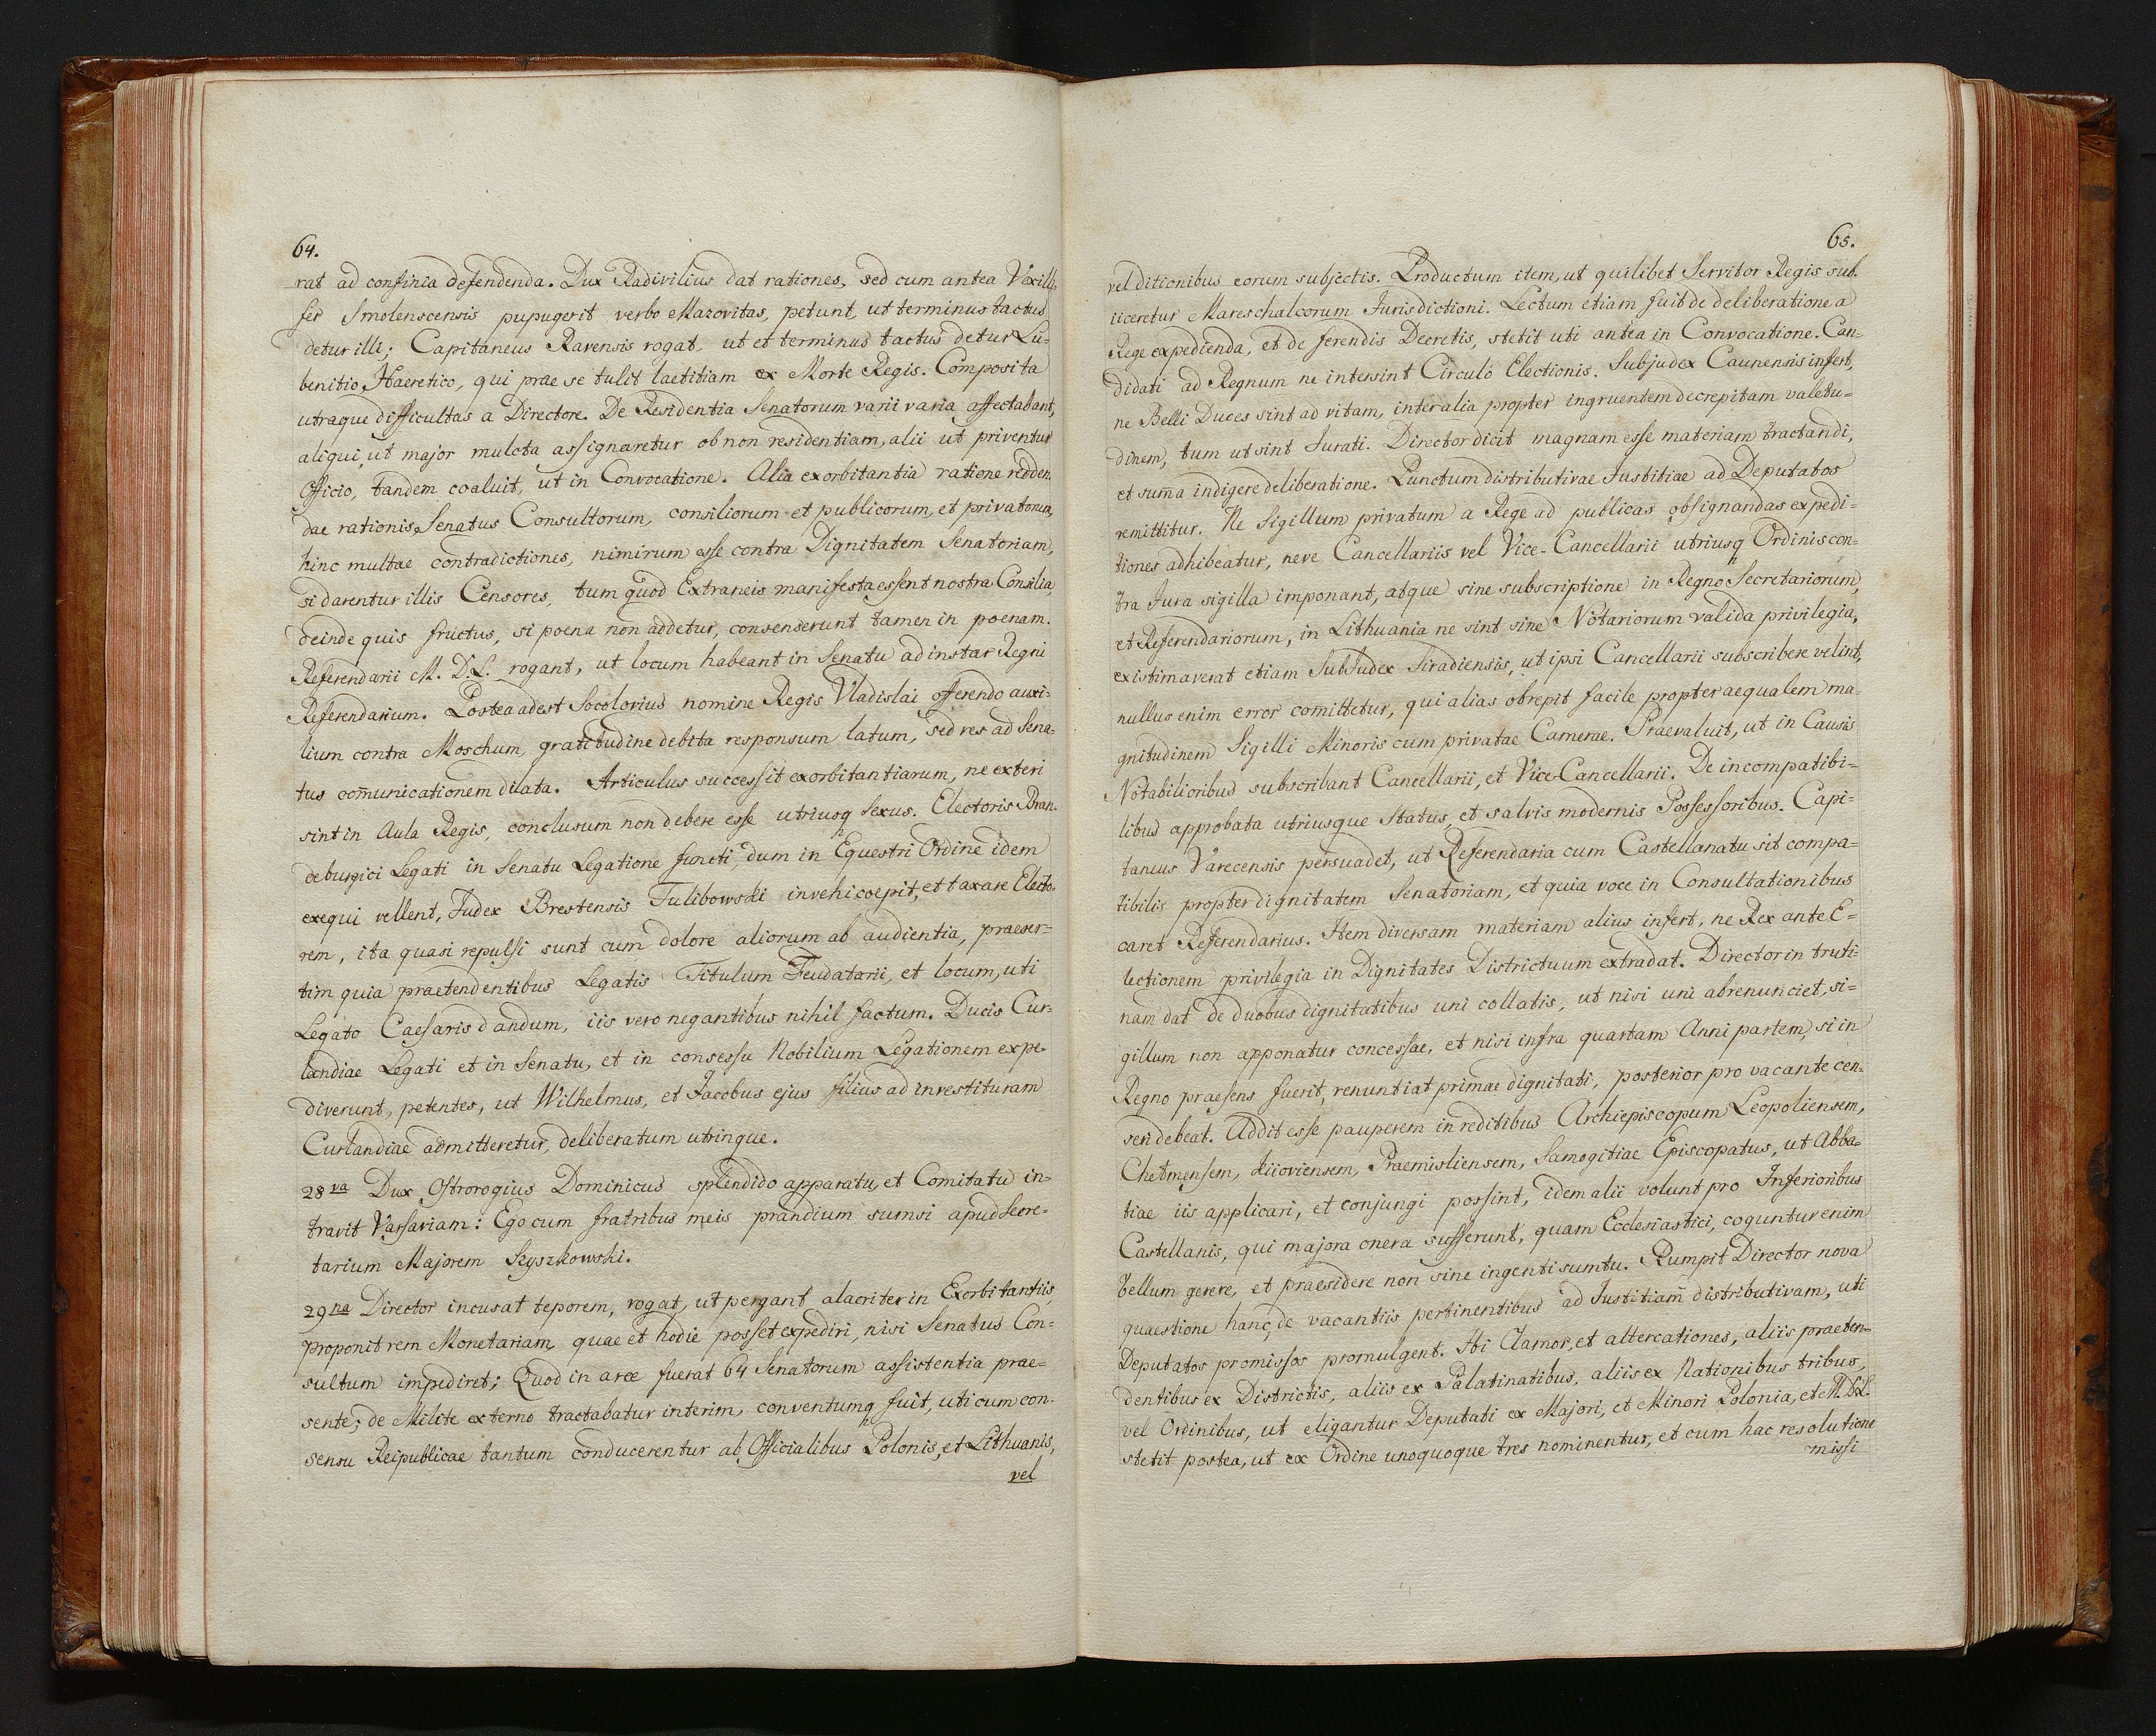 64.
rat ad confinia defendenda. Dux Radivilius dat rationes, sed cum antea Vexilli-
fer Smolenscensis pupugerit verbo Mazovitas, petunt, ut terminus tactus
detur illi; Capitaneus Ravensis rogat, ut et terminus tactus detur Lu-
benitio Haeretico, qui prae se tulit laetitiam ex Morte Regis. Composita
utraque difficultas a Directore. De Residentia Senatorum varii varia affectabant,
aliqui, ut major mulcta assignaretur ob non residentiam, alii ut priventur
Officio, tandem coaluit, ut in Convocatione. Alia exorbitantia ratione redden-
dae rationis Senatus Consultorum, consiliorum et publicorum, et privatorum,
hinc multae contradictiones, nimirum esse contra Dignitatem Senatoriam,
si darentur illis Censores, tum quod Extraneis manifesta essent nostra Consilia,
deinde quis fructus, si poena non addetur, consenserunt tamen in poenam.
Referendarii M. D. L. rogant, ut locum habeant in Senatu ad instar Regni
Referendarium. Postea adest Socolovius nomine Regis Vladislai offerendo auxi-
lium contra Moschum, gratitudine debita responsum latum, sed res ad Sena-
tus com̄unicationem dilata. Articulus successit exorbitantiarum, ne exteri
sint in Aula Regis, conclusum non debere esse utriusq Sexus. Electoris Bran-
deburgici Legati in Senatu Legatione functi, dum in Equestri Ordine idem
exequi vellent, Judex Brestensis Tulibowski invehi coepit, et taxare Electo-
rem, ita quasi repulsi sunt cum dolore aliorum ab audientia, praeser-
tim quia praetendentibus Legatis Titulum Feudatarii, et locum, uti
Legato Caesaris dandum, iis vero negantibus nihil factum. Ducis Cur-
landiae Legati et in Senatu, et in consessu Nobilium Legationem expe-
diverunt, petentes, ut Wilhelmus, et Jacobus ejus filius ad investituram
Curlandiae admitteretur, deliberatum utrinque.
28va Dux Ostrorogius Dominicus splendido apparatu, et Comitatu in-
travit Varsaviam: Ego cum fratribus meis prandium sumsi apud Secre-
tarium Majorem Szyszkowski.
29na Director incusat teporem, rogat, ut pergant alacriter in Exorbitantiis,
proponit rem Monetariam, quae et hodie posset expediri, nisi Senatus Con-
sultum impediret; Quod in arce fuerat 64 Senatorum assistentia prae-
sente; de Milite externo tractabatur interim, conventumq fuit, uti cum con-
sensu Reipublicae tantum conducerentur ab Officialibus Polonis, et Lithuanis,
vel
65.
vel ditionibus eorum subjectis. Productum item, ut quilibet Servitor Regis sub-
iiceretur Mareschalcorum Jurisdictioni. Lectum etiam fuit de deliberatione a
Rege expedienda, et de ferendis Decretis, stetit uti antea in Convocatione. Can-
didati ad Regnum ne intersint Circulo Electionis. Subjudex Caunensis infert,
ne Belli Duces sint ad vitam, inter alia propter ingruentem decrepitam valetu-
dinem, tum ut sint Jurati. Director dicit magnam esse materiam tractandi,
et sum̄a indigere deliberatione. Punctum distributivae Justitiae ad Deputatos
remittitur. Ne Sigillum privatum a Rege ad publicas obsignandas expedi-
tiones adhibeatur, neve Cancellariis vel Vice-Cancellarii utriusq Ordinis con-
tra Jura sigilla imponant, atque sine subscriptione in Regno Secretariorum,
et Referendariorum, in Lithuania ne sint sine Notariorum valida privilegia,
existimaverat etiam SubJudex Siradiensis, ut ipsi Cancellarii subscribere velint,
nullus enim error comittetur, qui alias obrepit facile propter aequalem ma-
gnitudinem Sigilli Minoris cum privatae Camerae. Praevaluit, ut in Causis
Notabilioribus subscribant Cancellarii, et Vice-Cancellarii. De incompatibi-
libus approbata utriusque Status, et salvis modernis Possessoribus. Capi-
taneus Varecensis persuadet, ut Referendaria cum Castellanatu sit compa-
tibilis propter dignitatem Senatoriam, et quia voce in Consultationibus
caret Referendarius. Item diversam materiam alius infert, ne Rex ante E-
lectionem privilegia in Dignitates Districtuum extradat. Director in truti-
nam dat de duobus dignitatibus uni collatis, ut nisi uni abrenunciet, si-
gillum non apponatur concessae, et nisi infra quartam Anni partem, si in
Regno praesens fuerit, renuntiat primae dignitati, posterior pro vacante cen-
seri debeat. Addit esse pauperem in reditibus Archiepiscopum Leopoliensem,
Chelmensem, Kiioviensem, Praemisliensem, Samogitiae Episcopatus, ut Abba-
tiae iis applicari, et conjungi possint, idem alii volunt pro Inferioribus
Castellanis, qui majora onera sufferunt, quam Ecclesiastici, coguntur enim
bellum gerere, et praesidere non sine ingenti sumtu. Rumpit Director nova
quaestione hanc, de vacantiis pertinentibus ad Justitiam distributivam, uti
Deputatos promissos promulgent. Hi Clamor, et altercationes, aliis praeten-
dentibus ex Districtis, aliis ex Palatinatibus, aliis ex Nationibus tribus,
vel Ordinibus, ut eligantur Deputati ex Majori, et Minori Polonia, et M. D. L.
stetit postea, ut ex Ordine unoquoque tres nominentur, et cum hac resolutione
missi